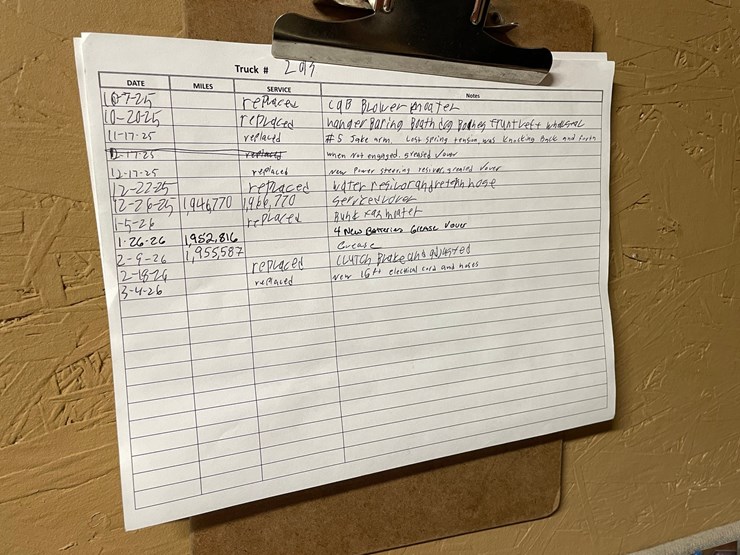 Truck # 209
DATE MILES SERVICE Notes
10-7-25 replaced CAB Blower moater
10-20-25 replaced hanger Baring Boath dog Boches Frunt Left wheel seal
11-17-25 replaced #5 Jake arm. Lost spring tension was knocking back and forth
when not engaged. greased
12-17-25 replaced New Power steering resivor, greased
12-22-25 replaced water resivor and retern hose
12-26-25 1,946,770 1,966,770 Serviced
1-5-26 replaced Bunk Fan moter
1-26-26 1,952,816 4 New Batteries Grease
2-9-26 1,955,587 Grease
2-18-26 replaced CLUTCH Brake and adjusted
3-4-26 replaced New 16ft electrical cord and